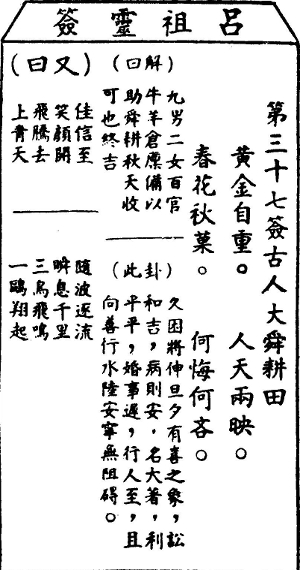 呂祖靈簽
第三十七簽古人大舜耕田
黃金自重。 人天兩映。
春花秋菓。 何悔何吝。
(解曰)
九男二女百官
牛羊倉廩備以
助舜耕秋天收
可也終吉
(此卦)
久困將伸旦夕有喜之象，訟
和吉，病則安。名大著，利
平平，婚事遲，行人至，且
向善行水陸安寧無阻碍。
(又曰)
佳信至
笑顏開
飛騰去
上青天
隨波逐流
瞬息千里
三鳥飛鳴
一鷗翔起